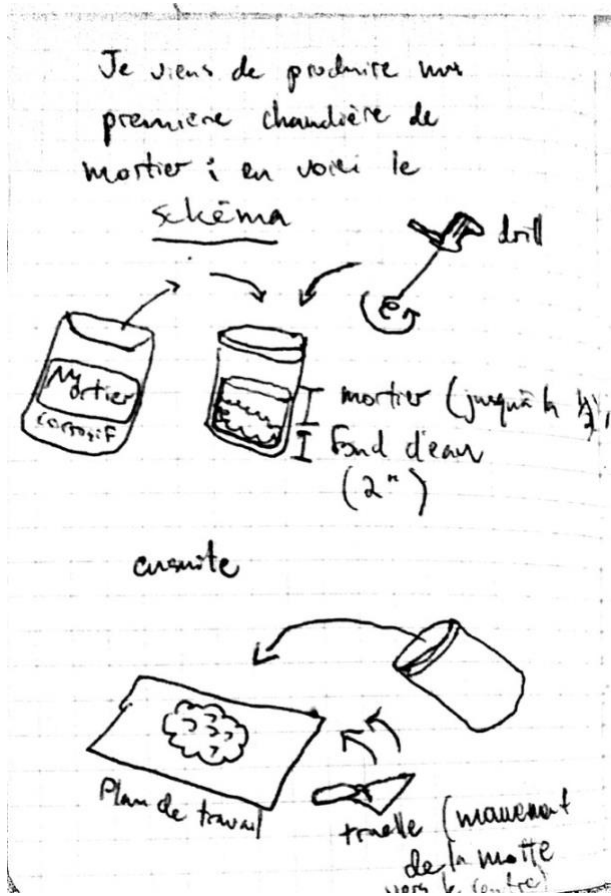 Je viens de produire ma
première chaudière de
mortier ; en voici le
schéma
drill
Mortier
corrosif
mortier (jusqu'à la ½)
Fond d'eau
(2")
ensuite
Plan de travail
truelle (mouvement
de la motte
vers le centre)